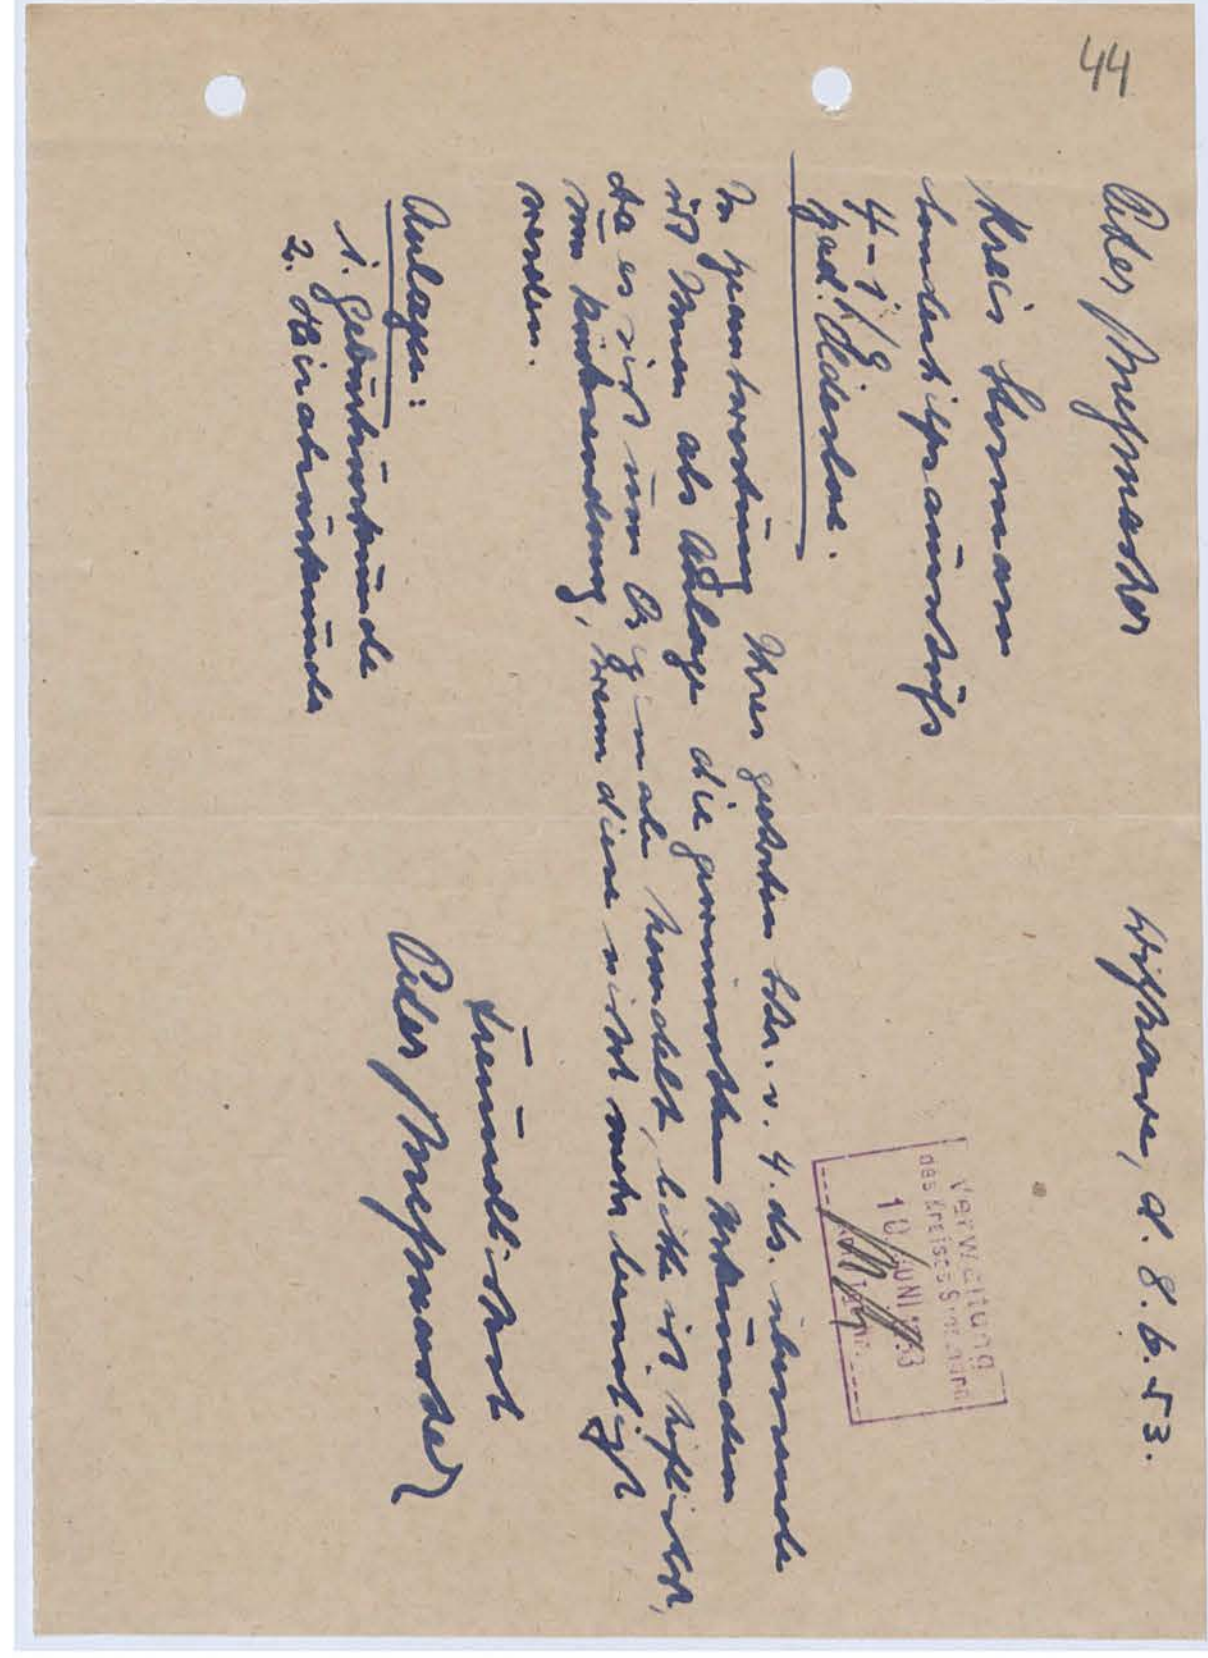 44
Peter
d. 8.6.53.
Kreis Stormarn
Sonderhilfsausschuß
4-1/9
Bad Oldesloe.
Verwaltung
des Kreises Stormarn
10. JUNI 1953
In Beantwortung Ihres geehrten Schr. v. 4. ds. übersende
ich Ihnen als Anlage die gewünschten Urkunden
da es sich um Originale handelt, bitte ich höflichst,
um Rücksendung, wenn diese nicht mehr benötigt
werden.
Freundlichst
Peter
Anlagen:
1. Geburtsurkunde
2. Heiratsurkunde